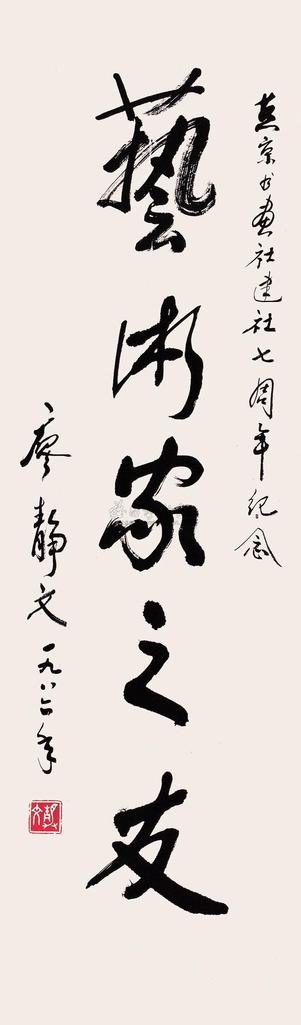 燕京书画社建社七周年纪念
藝術家之友
廖靜文一九八六年
靜文